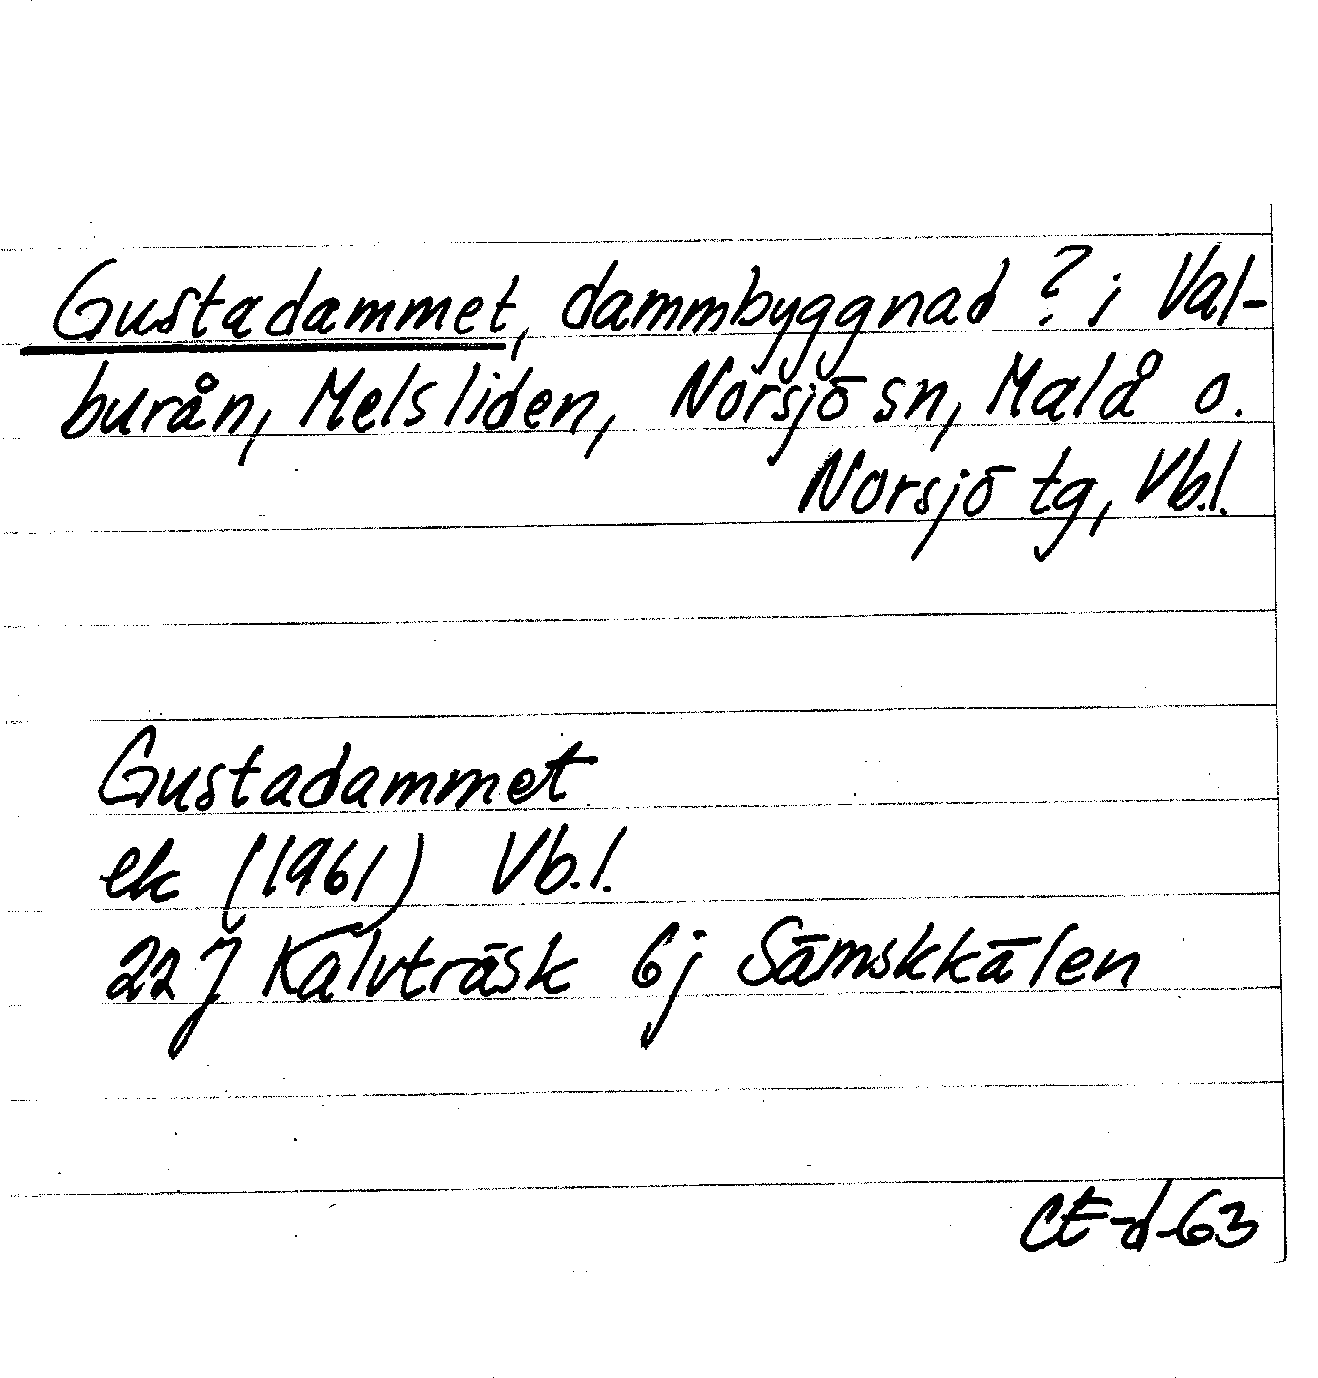 Gustadammet, dammbyggnad? i Val-
burån, Melsliden, Norsjö sn, Malå o.
Norsjö tg, Vb.l.
Gustadammet
ek (1961) Vb.l.
22J Kalvträsk 6j Sämskkälen
CE-d-63